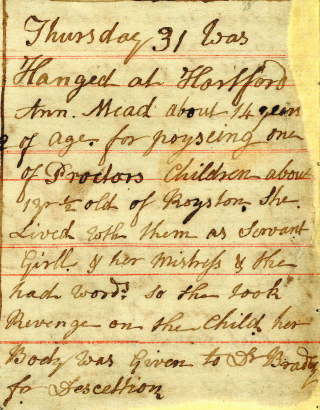 Thursday 31 Was
Hanged at Hartford
Ann. Mead about 14 years
of age. for poyseing one
of Proctors Children about
1 yr ½ old of Royston. She
Lived with them as Servant
Girll. & her Mistress & the
had words. so the took
Revenge on the Child. her
Body was Given to Dr Bradly
for Descettion